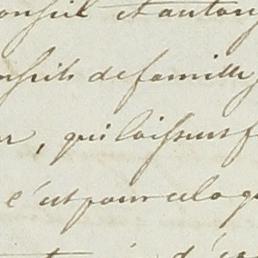 conseil et autori
conseils de famille
, qui laissent f
c'est pour cela q